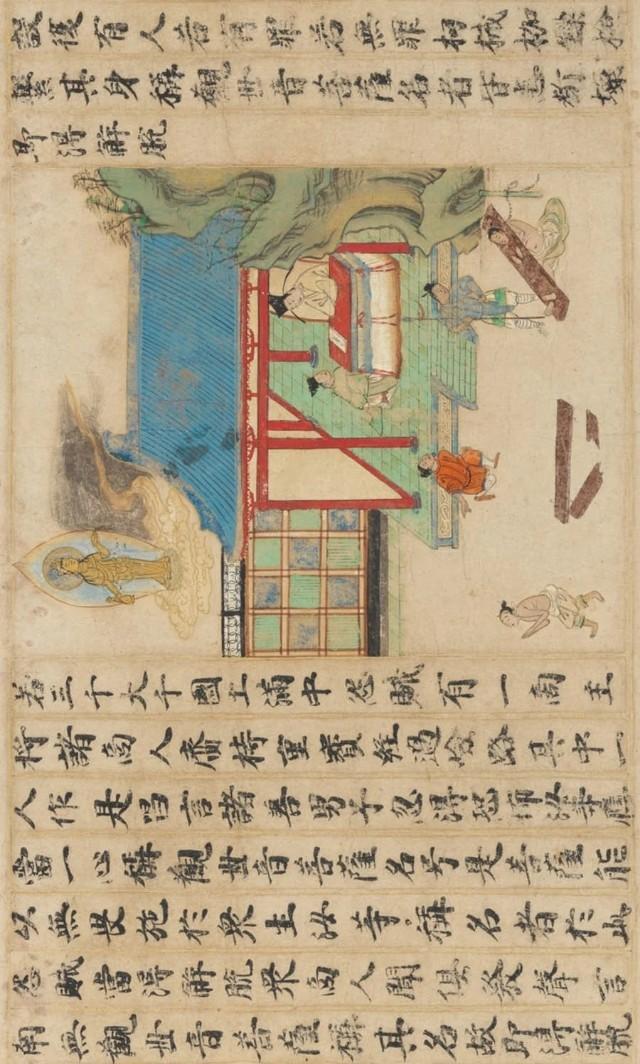 設復有人若有罪若無罪杻械枷鎖檢
繫其身稱觀世音菩薩名者皆悉斷壞
即得解脫
若三千大千國土滿中怨賊有一商主
將諸商人齎持重寶經過嶮路其中一
人作是唱言諸善男子勿得恐怖汝等應
當一心稱觀世音菩薩名号是菩薩能
以無畏施於衆生汝等稱名者於此
怨賊當得解脫衆商人聞俱發聲言
南無觀世音菩薩稱其名故即得解脫